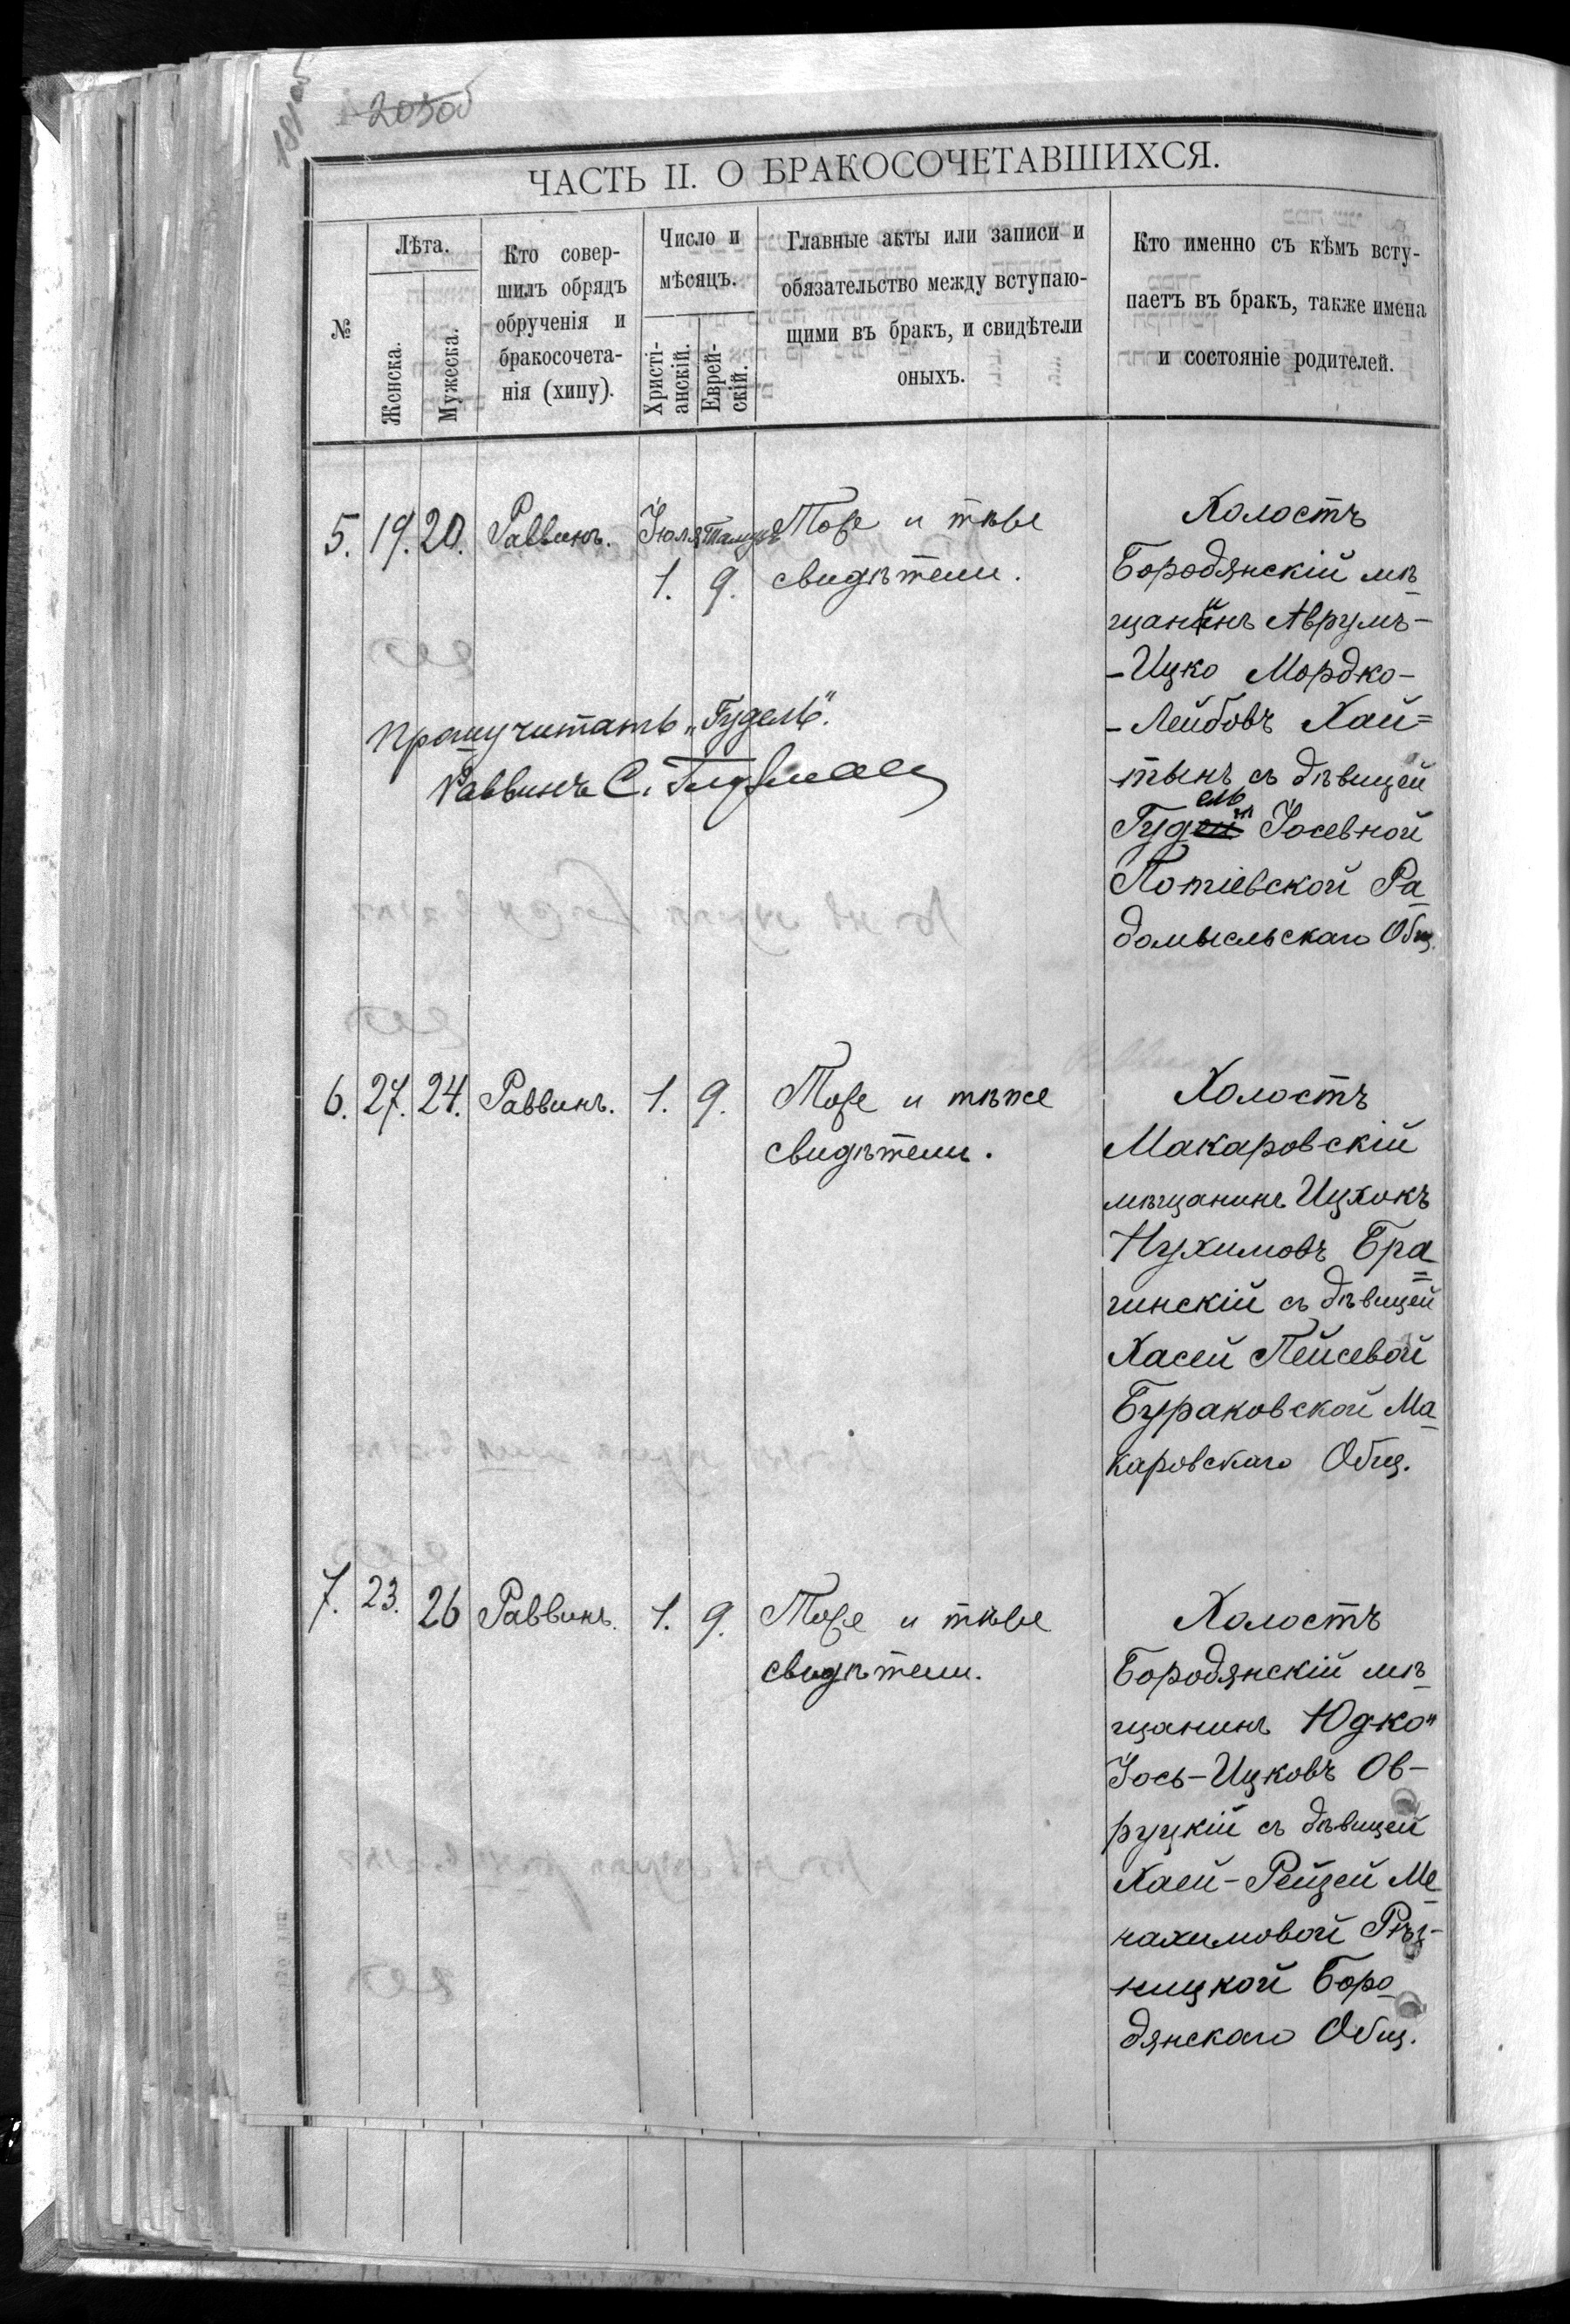 181об
2050б
ЧАСТЬ II. О БРАКОСОЧЕТАВШИХСЯ.
№
Лѣта.
Женска.
Мужеска.
Кто совер-
шилъ обрядъ
обрученія и
бракосочета-
нія (хипу).
Число и
мѣсяцъ.
Христі-
анскій.
Еврей-
скій.
Главные акты или записи и
обязательство между вступаю-
щими въ бракъ, и свидѣтели
оныхъ.
Кто именно съ кѣмъ всту-
паетъ въ бракъ, также имена
и состояніе родителей.
5. 19. 20. Раввинъ. Іюля Тамузъ Тоже и тѣже
1. 9. свидѣтели.
Холостъ
Бородянскій мѣ
щанинъ Аврумъ-
-Ицко Мордко-
-Лейбовъ Хай=
тинъ съ дѣвицей
Гудель Іосевной
Потіевской Ра
домысльскаго Общ.
Прошу читать „Гудель".
Раввинъ С.
6. 27. 24. Раввинъ. 1. 9. Тоже и тѣже
свидѣтели.
Холостъ
Макаровскій
мѣщанинъ Ицхокъ
Нухимовъ Бра
гинскій съ дѣвицей
Хасей Пейсевой
Бураковской Ма
каровскаго Общ.
7. 23. 26 Раввинъ. 1. 9. Тоже и тѣже
свидѣтели.
Холостъ
Бородянскій мѣ
щанинъ Юдко
Іось-Ицковъ Ов-
руцкій съ дѣвицей
Хаей-Рейзей Ме
нахимовой Рѣз-
ницкой Боро
дянскаго Общ.